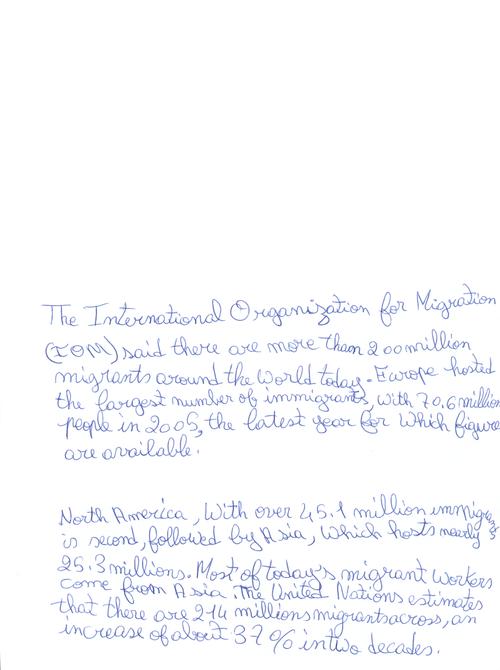 The International Organization for Migration
(IOM) said there are more than 200 million
migrants around the World today. Europe hosted
the largest number of immigrants, With 70.6 million
people in 2005, the latest year for Which figure
are available.
North America, With over 45.1 million
is second, followed by Asia, Which hosts nearly
25.3 millions. Most of today's migrant Workers
come from Asia. The United Nations estimates
that there are 214 millions migrants across, an
increase of about 37% in two decades.